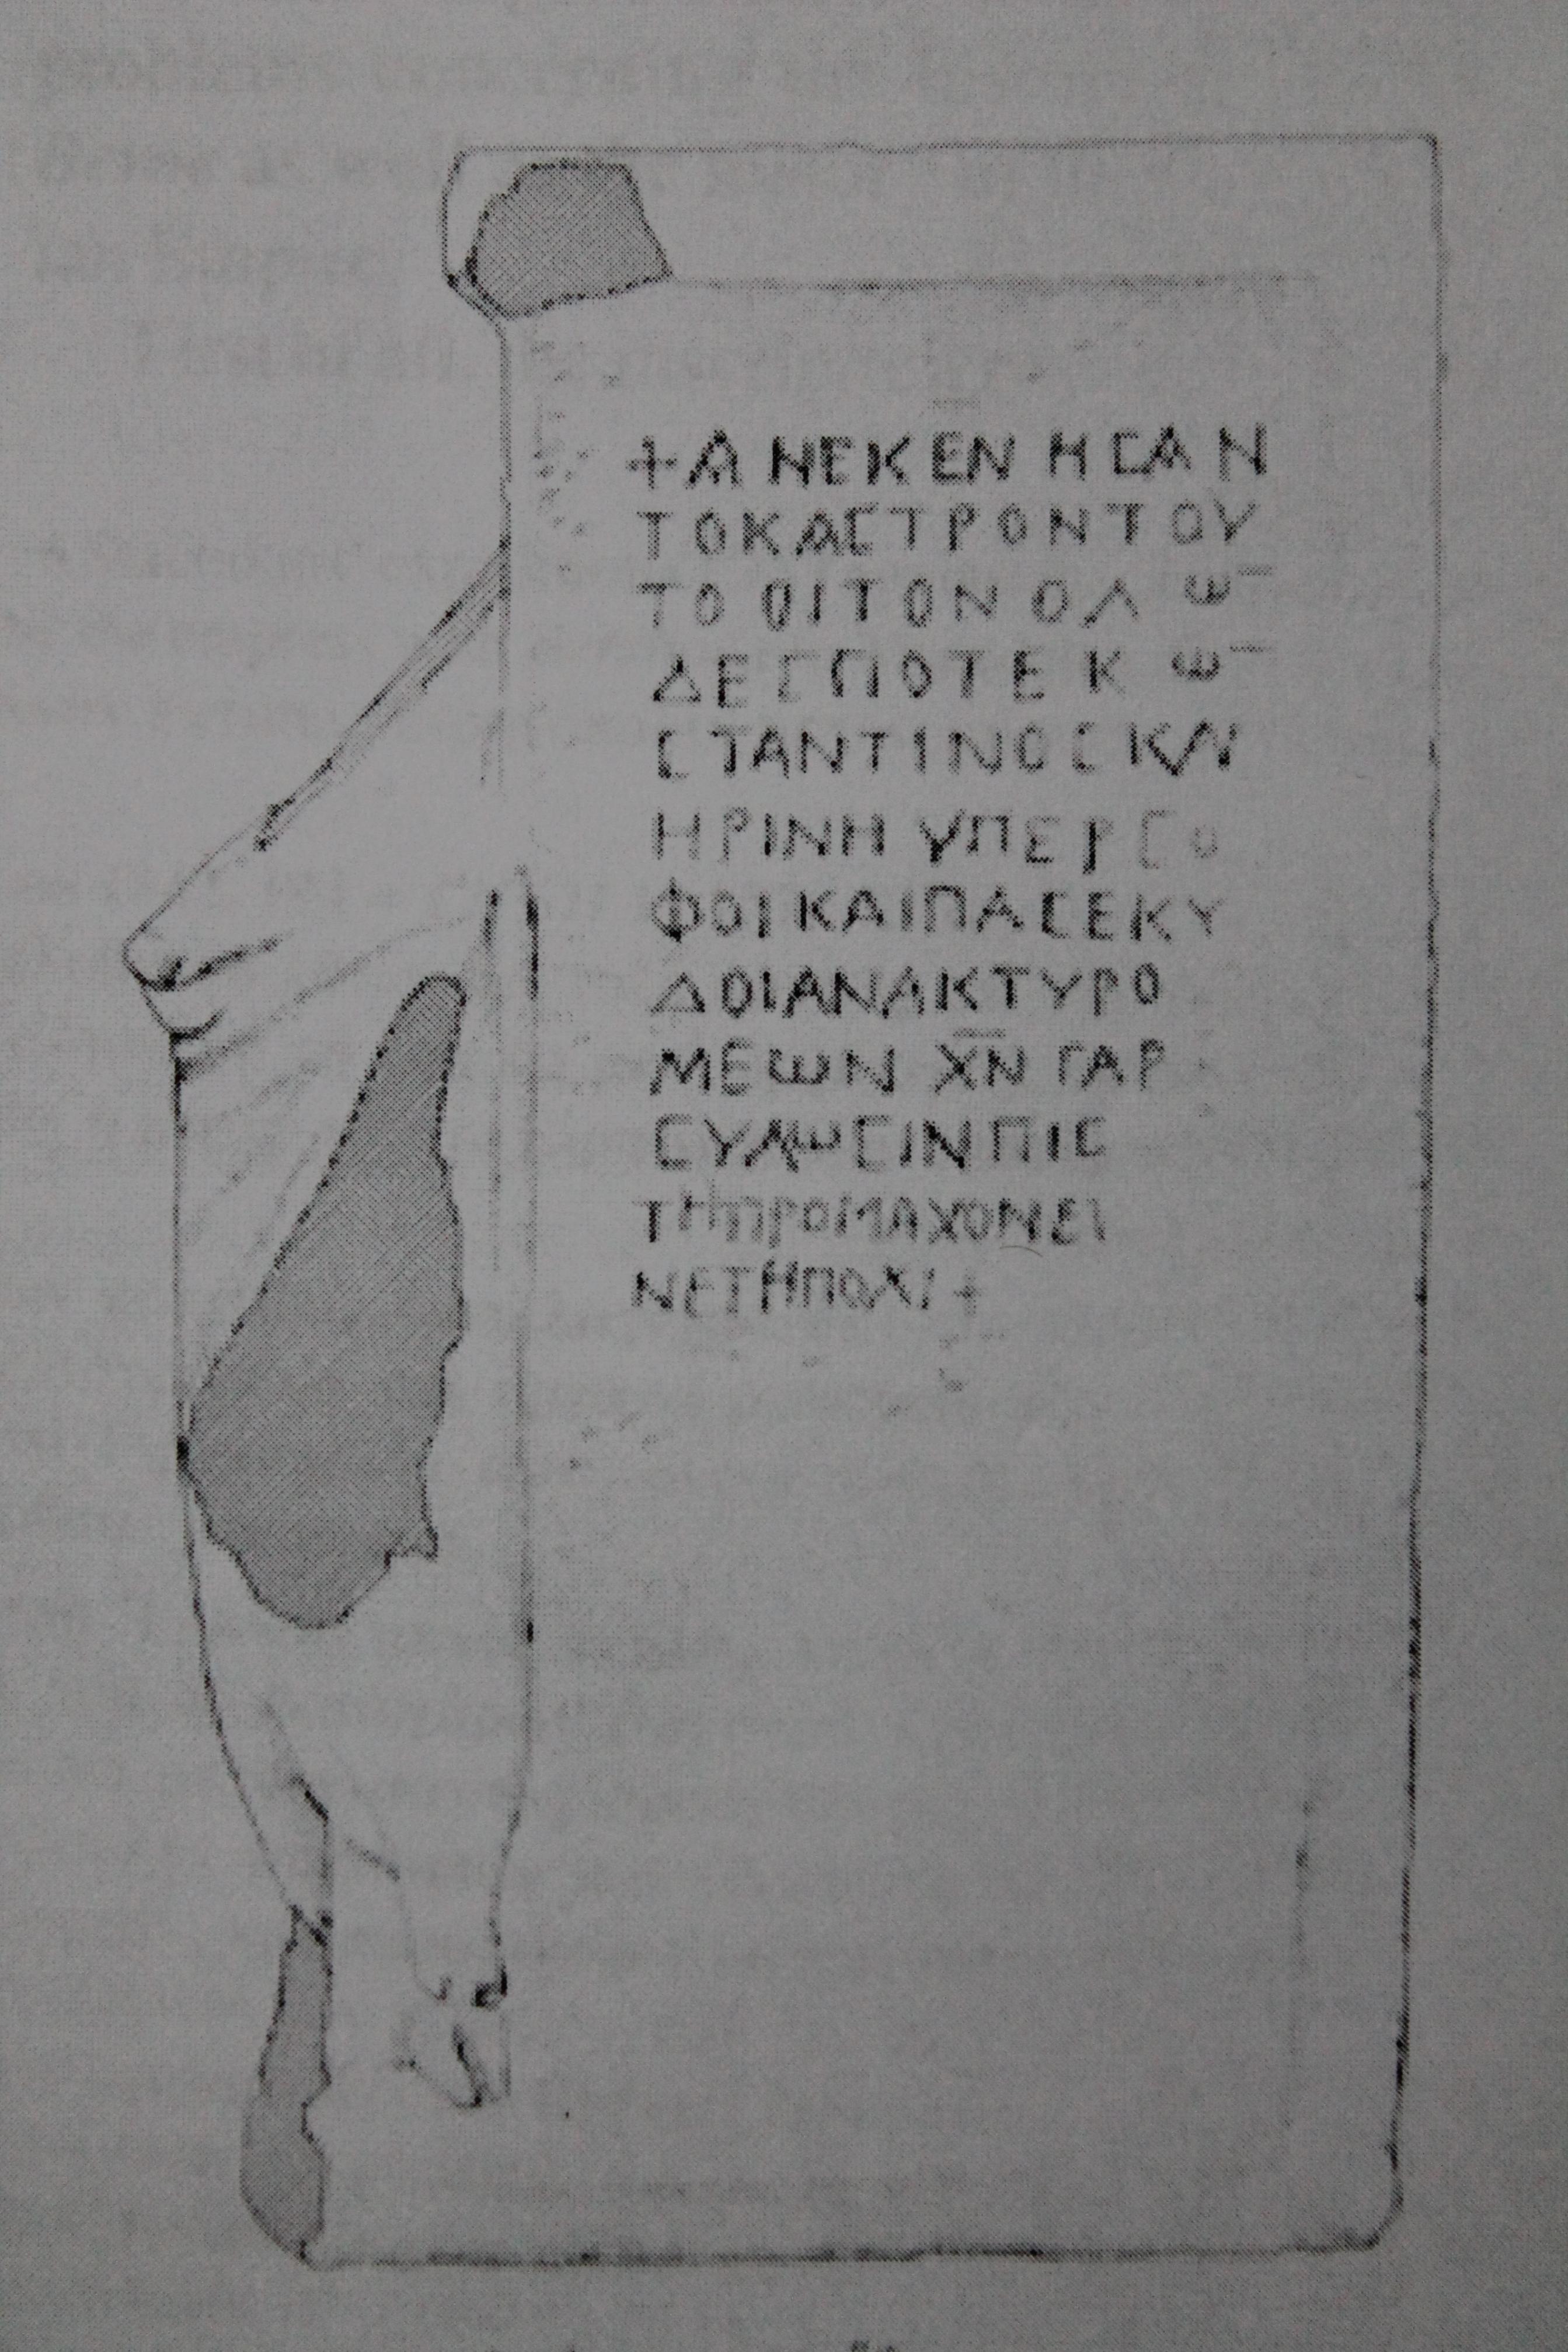 +ΑΝΕΚΕΝΗCΑΝ
ΤΟΚΑCΤΡΟΝΤΟΥ
ΤΟΟΙΤΟΝΟΛΩ̅
ΔΕCΠΟΤΕΚΩ̅
CΤΑΝΤΙΝΟCΚΑΙ
ΗΡΙΝΗΥΠΕΡCΟ
ΦΟΙΚΑΙΠΑCΕΚΥ
ΔΟΙΑΝΑΚΤΥΡΟ
ΜΕΩΝΧ̅Ν̅ΓΑΡ
CΥΛΩCΙΝΠΙC
ΤΗΠΡΟΜΑΧΟΝΕΙ
ΝΕΤΗΠΟΛΙ+